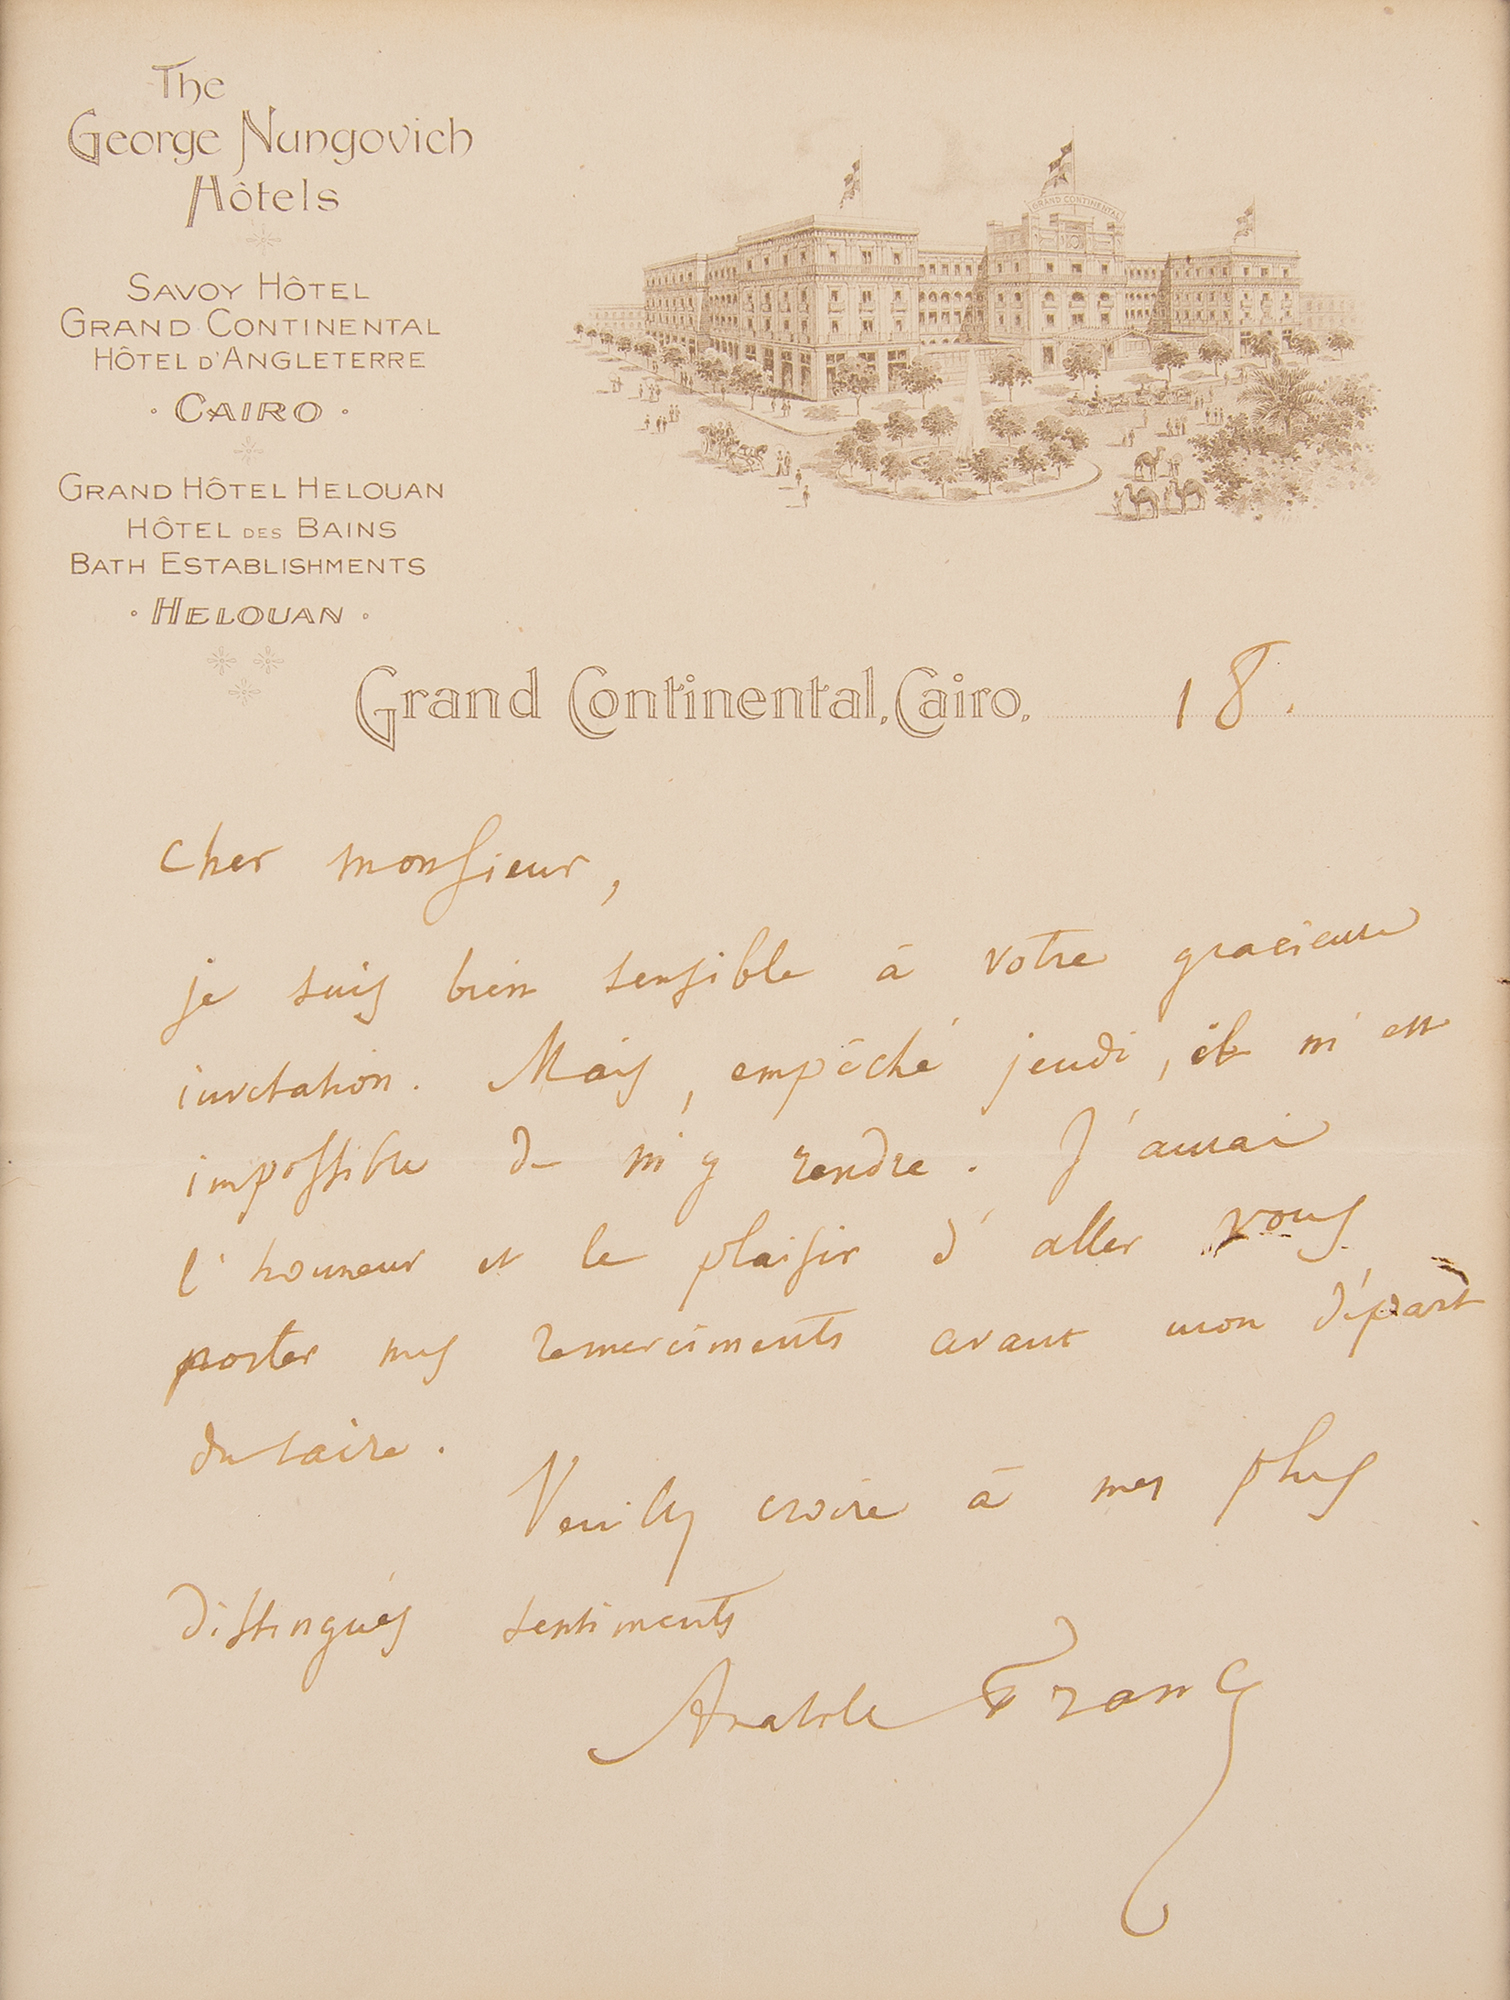 The
George Nungovich
Hôtels
SAVOY HÔTEL
GRAND CONTINENTAL
HÔTEL D'ANGLETERRE
· CAIRO ·
GRAND HÔTEL HELOUAN
HÔTEL DES BAINS
BATH ESTABLISHMENTS
· HELOUAN ·
GRAND CONTINENTAL
Grand Continental, Cairo. 18.
Cher monsieur,
je suis bien sensible à votre gracieuse
invitation. Mais, empêché jeudi, il m'est
impossible de m'y rendre. J'aurai
l'honneur et le plaisir d'aller vous
porter mes remerciments avant mon départ
du Caire.
Veuillez croire à mes plus
distingués sentiments
Anatole France